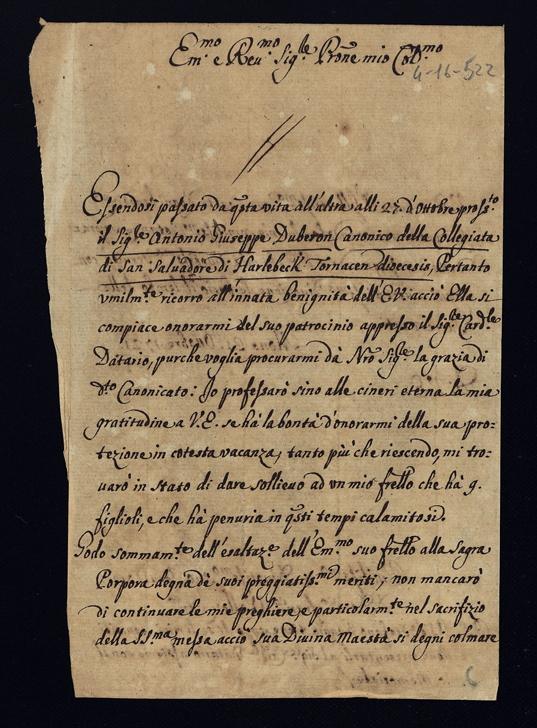 Em.mo e Reu.mo Sig.le Prone mio Col.mo
4-16-522
Essendosi passato da qsta vita all'altra alli 27. d'Ottobre pross.to
il Sig.le Antonio Giuseppe Duberon Canonico della Collegiata
di San Salvadore di Harlebeck Tornacen diœcesis, Pertanto
vmilm.te ricorro all'innata benignità dell'E.V. acciò Ella si
compiace onorarmi del suo patrocinio appresso il Sig.le Card.le
Datario, purche voglia procurarmi dà Nro Sig.le la grazia di
d.to Canonicato: Jo professarò sino alle cineri eterna la mia
gratitudine a V.E. se hà la bontà d'onorarmi della sua pro=
tezione in cotesta vacanza, tanto più che riescendo, mi tro=
uarò in stato di dare sollieuo ad vn mio frello che hà 9.
figlioli, e che hà penuria in qsti tempi calamitosi.
Godo sommam.te dell'esaltaz.e dell'Em.mo suo frello alla sagra
Porpora degna dè suoi preggiatiss.mi meriti; non mancarò
di continuare le mie preghiere, e particolarm.te nel sacrifizio
della S.S.ma messa acciò sua Divina Maestà si degni colmare
6